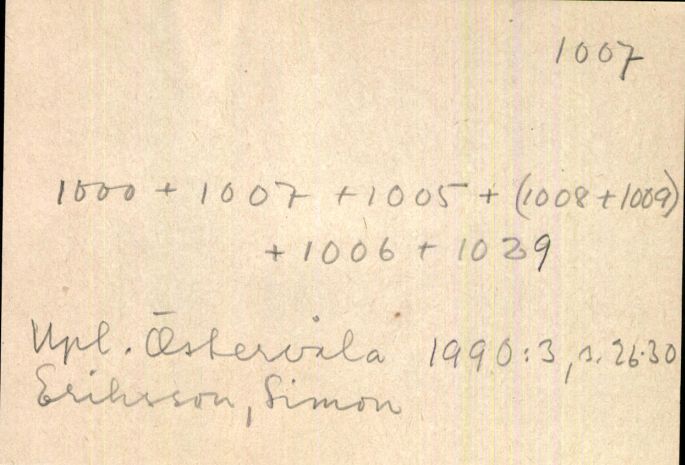 1007
1000 + 1007 + 1005 + (1008 + 1009)
+ 1006 + 1029
Upl. Östervåla 1990:3, s. 26-30
Eriksson, Simon